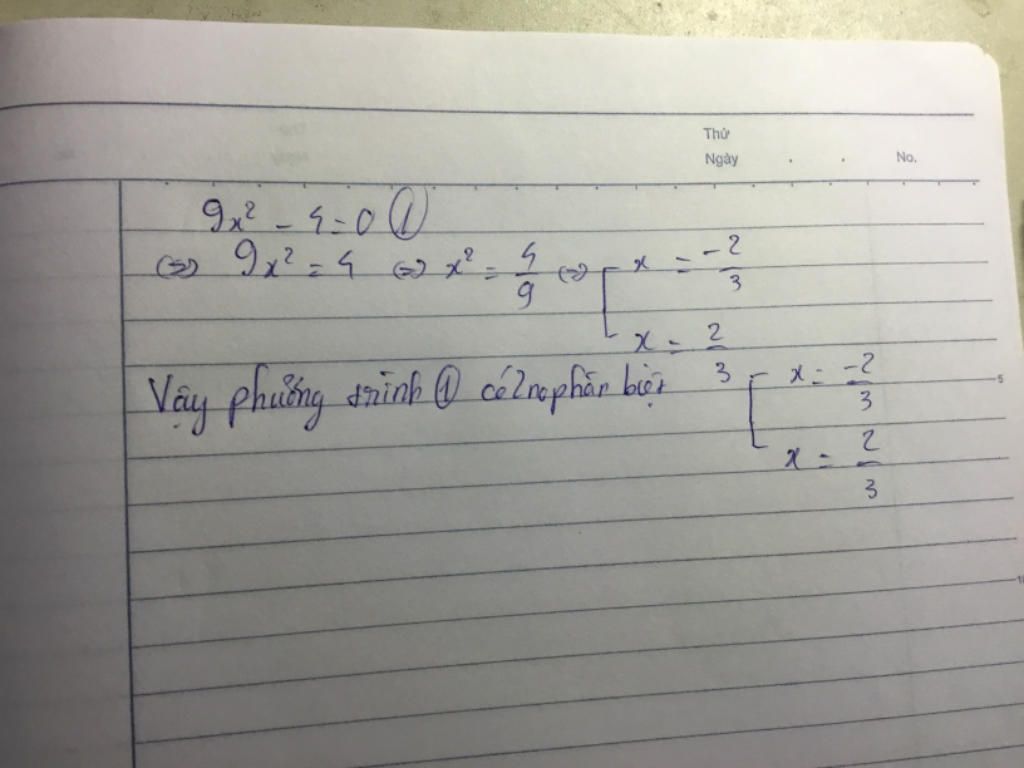 Thứ
Ngày . . No.
9x² - 4 = 0 ①
⇔ 9x² = 4 ⇔ x² = 4/9 ⇔ [ x = -2/3
x = 2/3
Vậy phương trình ① có 2 no phân biệt [ x = -2/3
5
x = 2/3
10